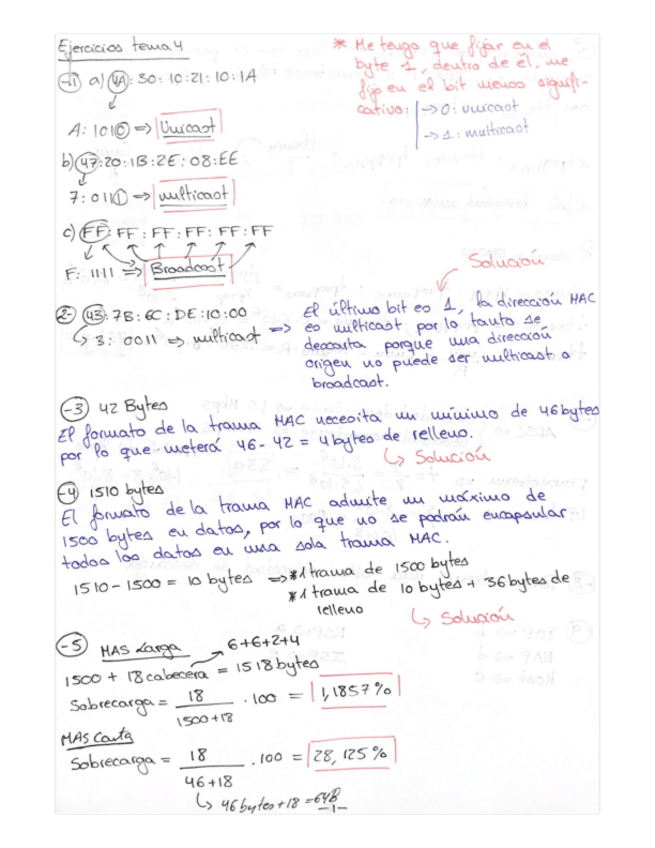 Ejercicios tema 4
* Me tengo que fijar en el
byte 1, dentro de él, me
fijo en el bit menos signifi-
cativo: → 0: unicast
→ 1: multicast
-1 a) 4A: 30: 10:21:10:1A
A: 1010 => Unicast
b) 47:20:1B:2E:08:EE
7: 0111 => multicast
c) FF: FF: FF: FF: FF: FF
F: 1111 => Broadcast
Solución
2- 43: 7B: 6C: DE:10:00
3: 0011 => multicast =>
El último bit es 1, la dirección MAC
es multicast, por lo tanto se
descarta porque una dirección
origen no puede ser multicast o
broadcast.
-3 42 Bytes
El formato de la trama MAC necesita un mínimo de 46 bytes
por lo que meterá 46-42 = 4 bytes de relleno.
↳ Solución
-4 1510 bytes
El formato de la trama MAC admite un máximo de
1500 bytes en datos, por lo que no se podrán encapsular
todos los datos en una sola trama MAC.
1510-1500 = 10 bytes => * 1 trama de 1500 bytes
* 1 trama de 10 bytes + 36 bytes de
relleno
↳ Solución
-5 MAS Larga 6+6+2+4
1500 + 18 cabecera = 1518 bytes
Sobrecarga = 18 / 1500+18 · 100 = 1,1857%
MAS Corta
Sobrecarga = 18 / 46+18 · 100 = 28,125%
↳ 46 bytes + 18 = 64B
-1-